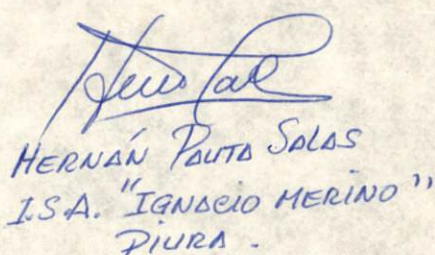 HERNÁN PAUTA SALAS
I.S.A. "IGNACIO MERINO"
PIURA.